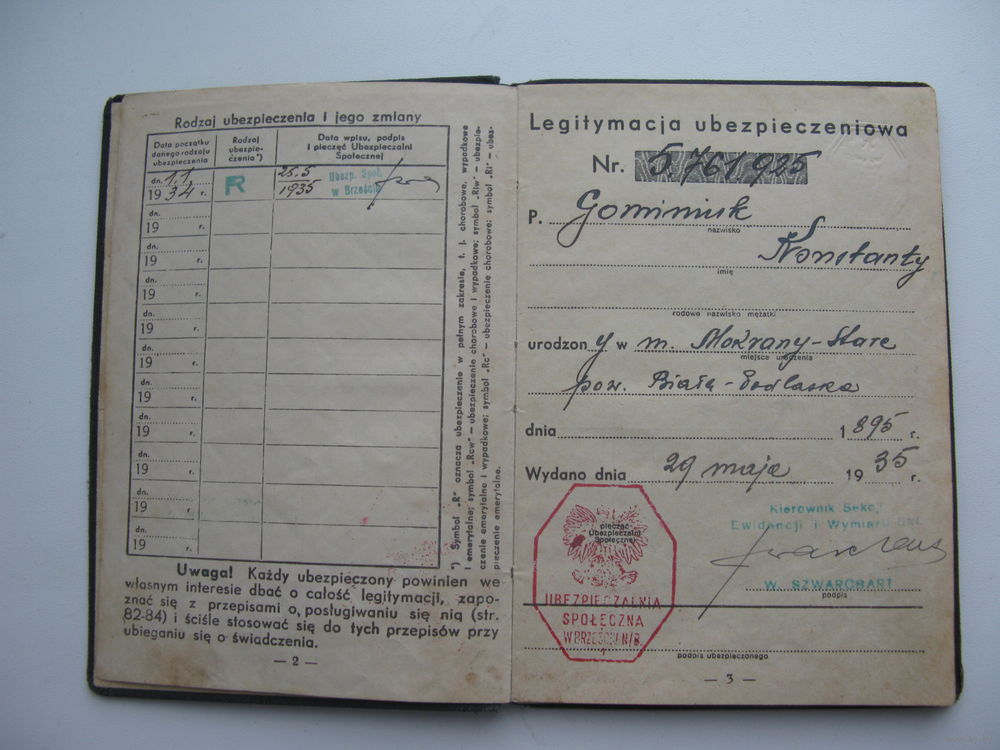 Rodzaj ubezpieczenia i jego zmiany
Data początku danego rodzaju ubezpieczenia
Rodzaj ubezpieczenia*)
Data wpisu, podpis i pieczęć Ubezpieczalni Społecznej
dn. 1.1.
19 34 r.
R
25.5
1935
Ubezp. Społ.
w Brześciu
dn.
19 r.
dn.
19 r.
dn.
19 r.
dn.
19 r.
dn.
19 r.
dn.
19 r.
dn.
19 r.
dn.
19 r.
dn.
19 r.
dn.
19 r.
dn.
19 r.
*) Symbol „R" oznacza ubezpieczenie w pełnym zakresie, t. j. chorobowe, wypadkowe
i emerytalne; symbol „Rcw" — ubezpieczenie chorobowe i wypadkowe; symbol „Rlw" — ubezpie-
czenie emerytalne i wypadkowe; symbol „Rc" — ubezpieczenie chorobowe; symbol „Rl" — ubez-
pieczenie emerytalne.
Uwaga! Każdy ubezpieczony powinien we
własnym interesie dbać o całość legitymacji, zapo-
znać się z przepisami o posługiwaniu się nią (str.
82-84) i ściśle stosować się do tych przepisów przy
ubieganiu się o świadczenia.
— 2 —
Legitymacja ubezpieczeniowa
Nr. 5.761.925
P. Gominiuk
nazwisko
Konstanty
imię
rodowe nazwisko mężatki
urodzon y w m. Mokrany-Stare
miejsce urodzenia
pow. Biała-Podlaska
dnia 1895 r.
Wydano dnia 29 maja 1935 r.
Kierownik Sekcji
Ewidencji i Wymiaru
W. SZWARCBART
podpis
pieczęć
Ubezpieczalni
Społecznej
UBEZPIECZALNIA
SPOŁECZNA
W BRZEŚCIU N/B.
1
podpis ubezpieczonego
— 3 —